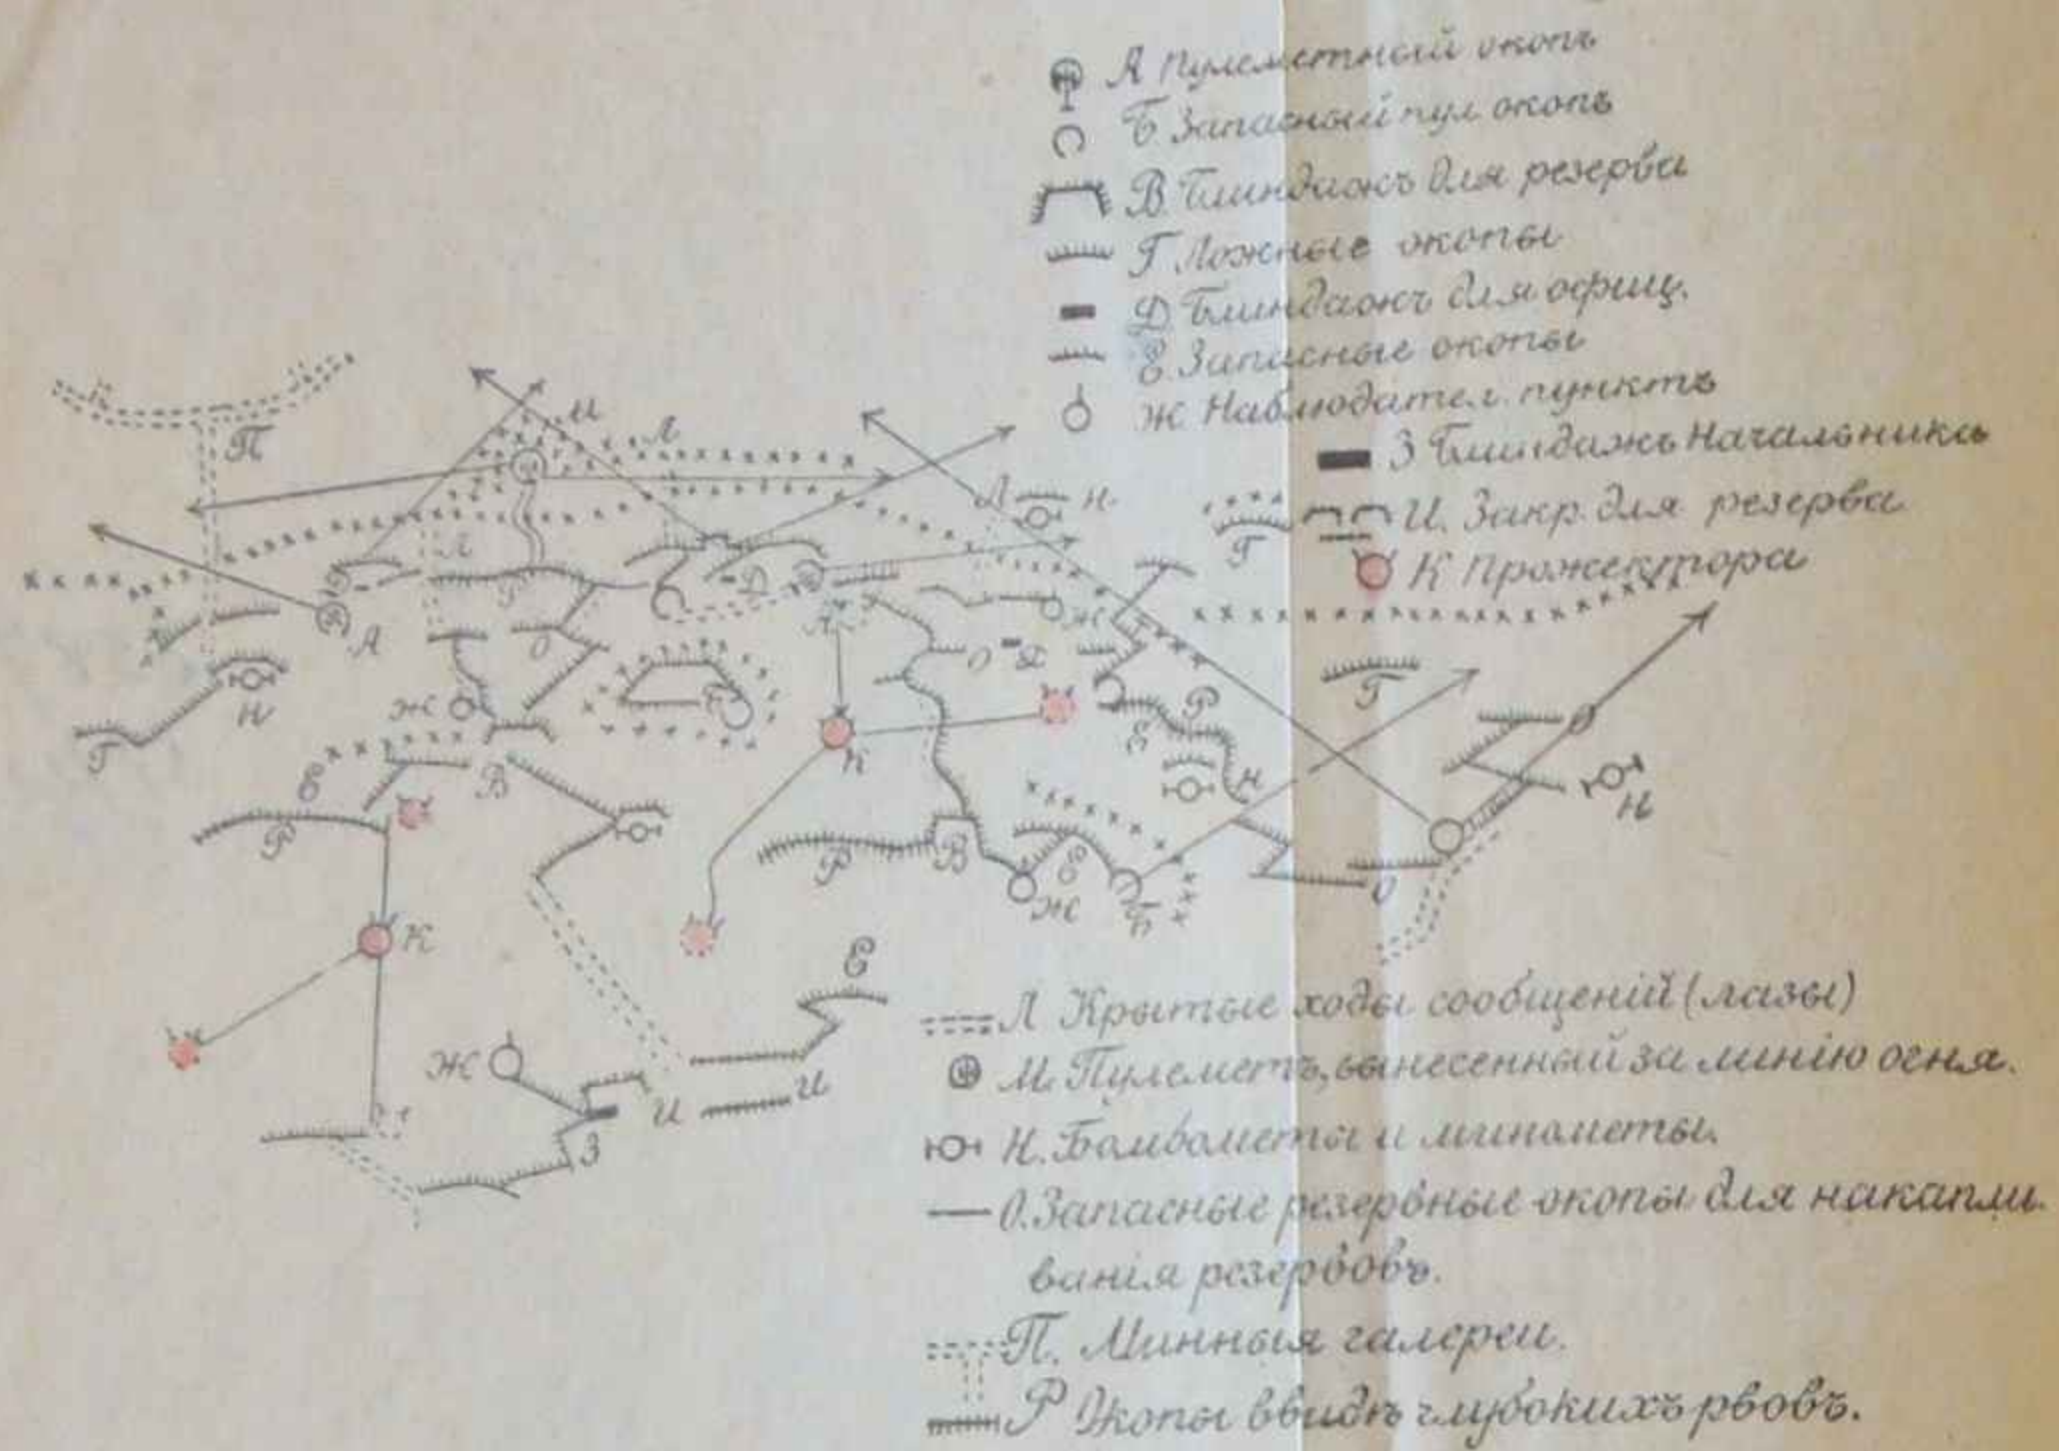 А Пулеметный окопъ
Б Запасный пул окопъ
В. Блиндажъ для резерва
Г Ложные окопы
Д Блиндажъ для офиц.
Е. Запасные окопы
Ж Наблюдател. пунктъ
З Блиндажъ Начальника
И. Закр. для резерва
К Прожектора
И
Л
П
Л
Н
Г
Л
Р
Д
А
О
Ж
О
Д
Г
Н
Ж
Б
Р
Е
Г
К
Н
Н
В
Р
Р
В
Ж
Б
О
К
Е
Ж
И
И
З
Л Крытые ходы сообщенiй (лазы)
М. Пулеметъ, вынесенный за линiю огня.
Н. Бомбометы и минометы.
О. Запасные резервные окопы для накапли-
ванiя резервовъ.
П. Минныя галереи.
Р Окопы ввидѣ глубокихъ рвовъ.